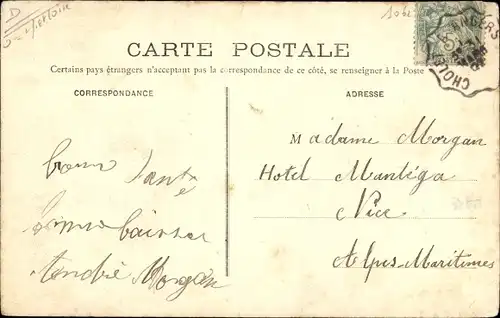 D
CARTE POSTALE
Certains pays étrangers n'acceptant pas la correspondance de ce côté, se renseigner à la Poste
CORRESPONDANCE
ADRESSE
Bonne Santé
baiser
André Morgan
Madame Morgan
Hotel Mantéga
Nice
Alpes-Maritimes
ANGERS
CHOLET